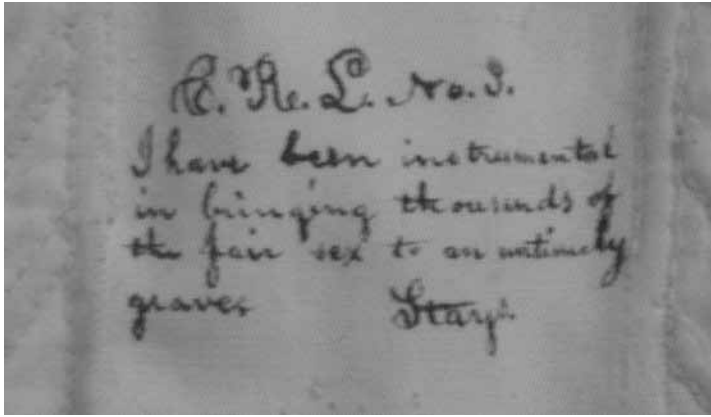 C. R. L. No. 3.
I have been instrumental
in bringing thousands of
the fair sex to an untimely
graves Stays.